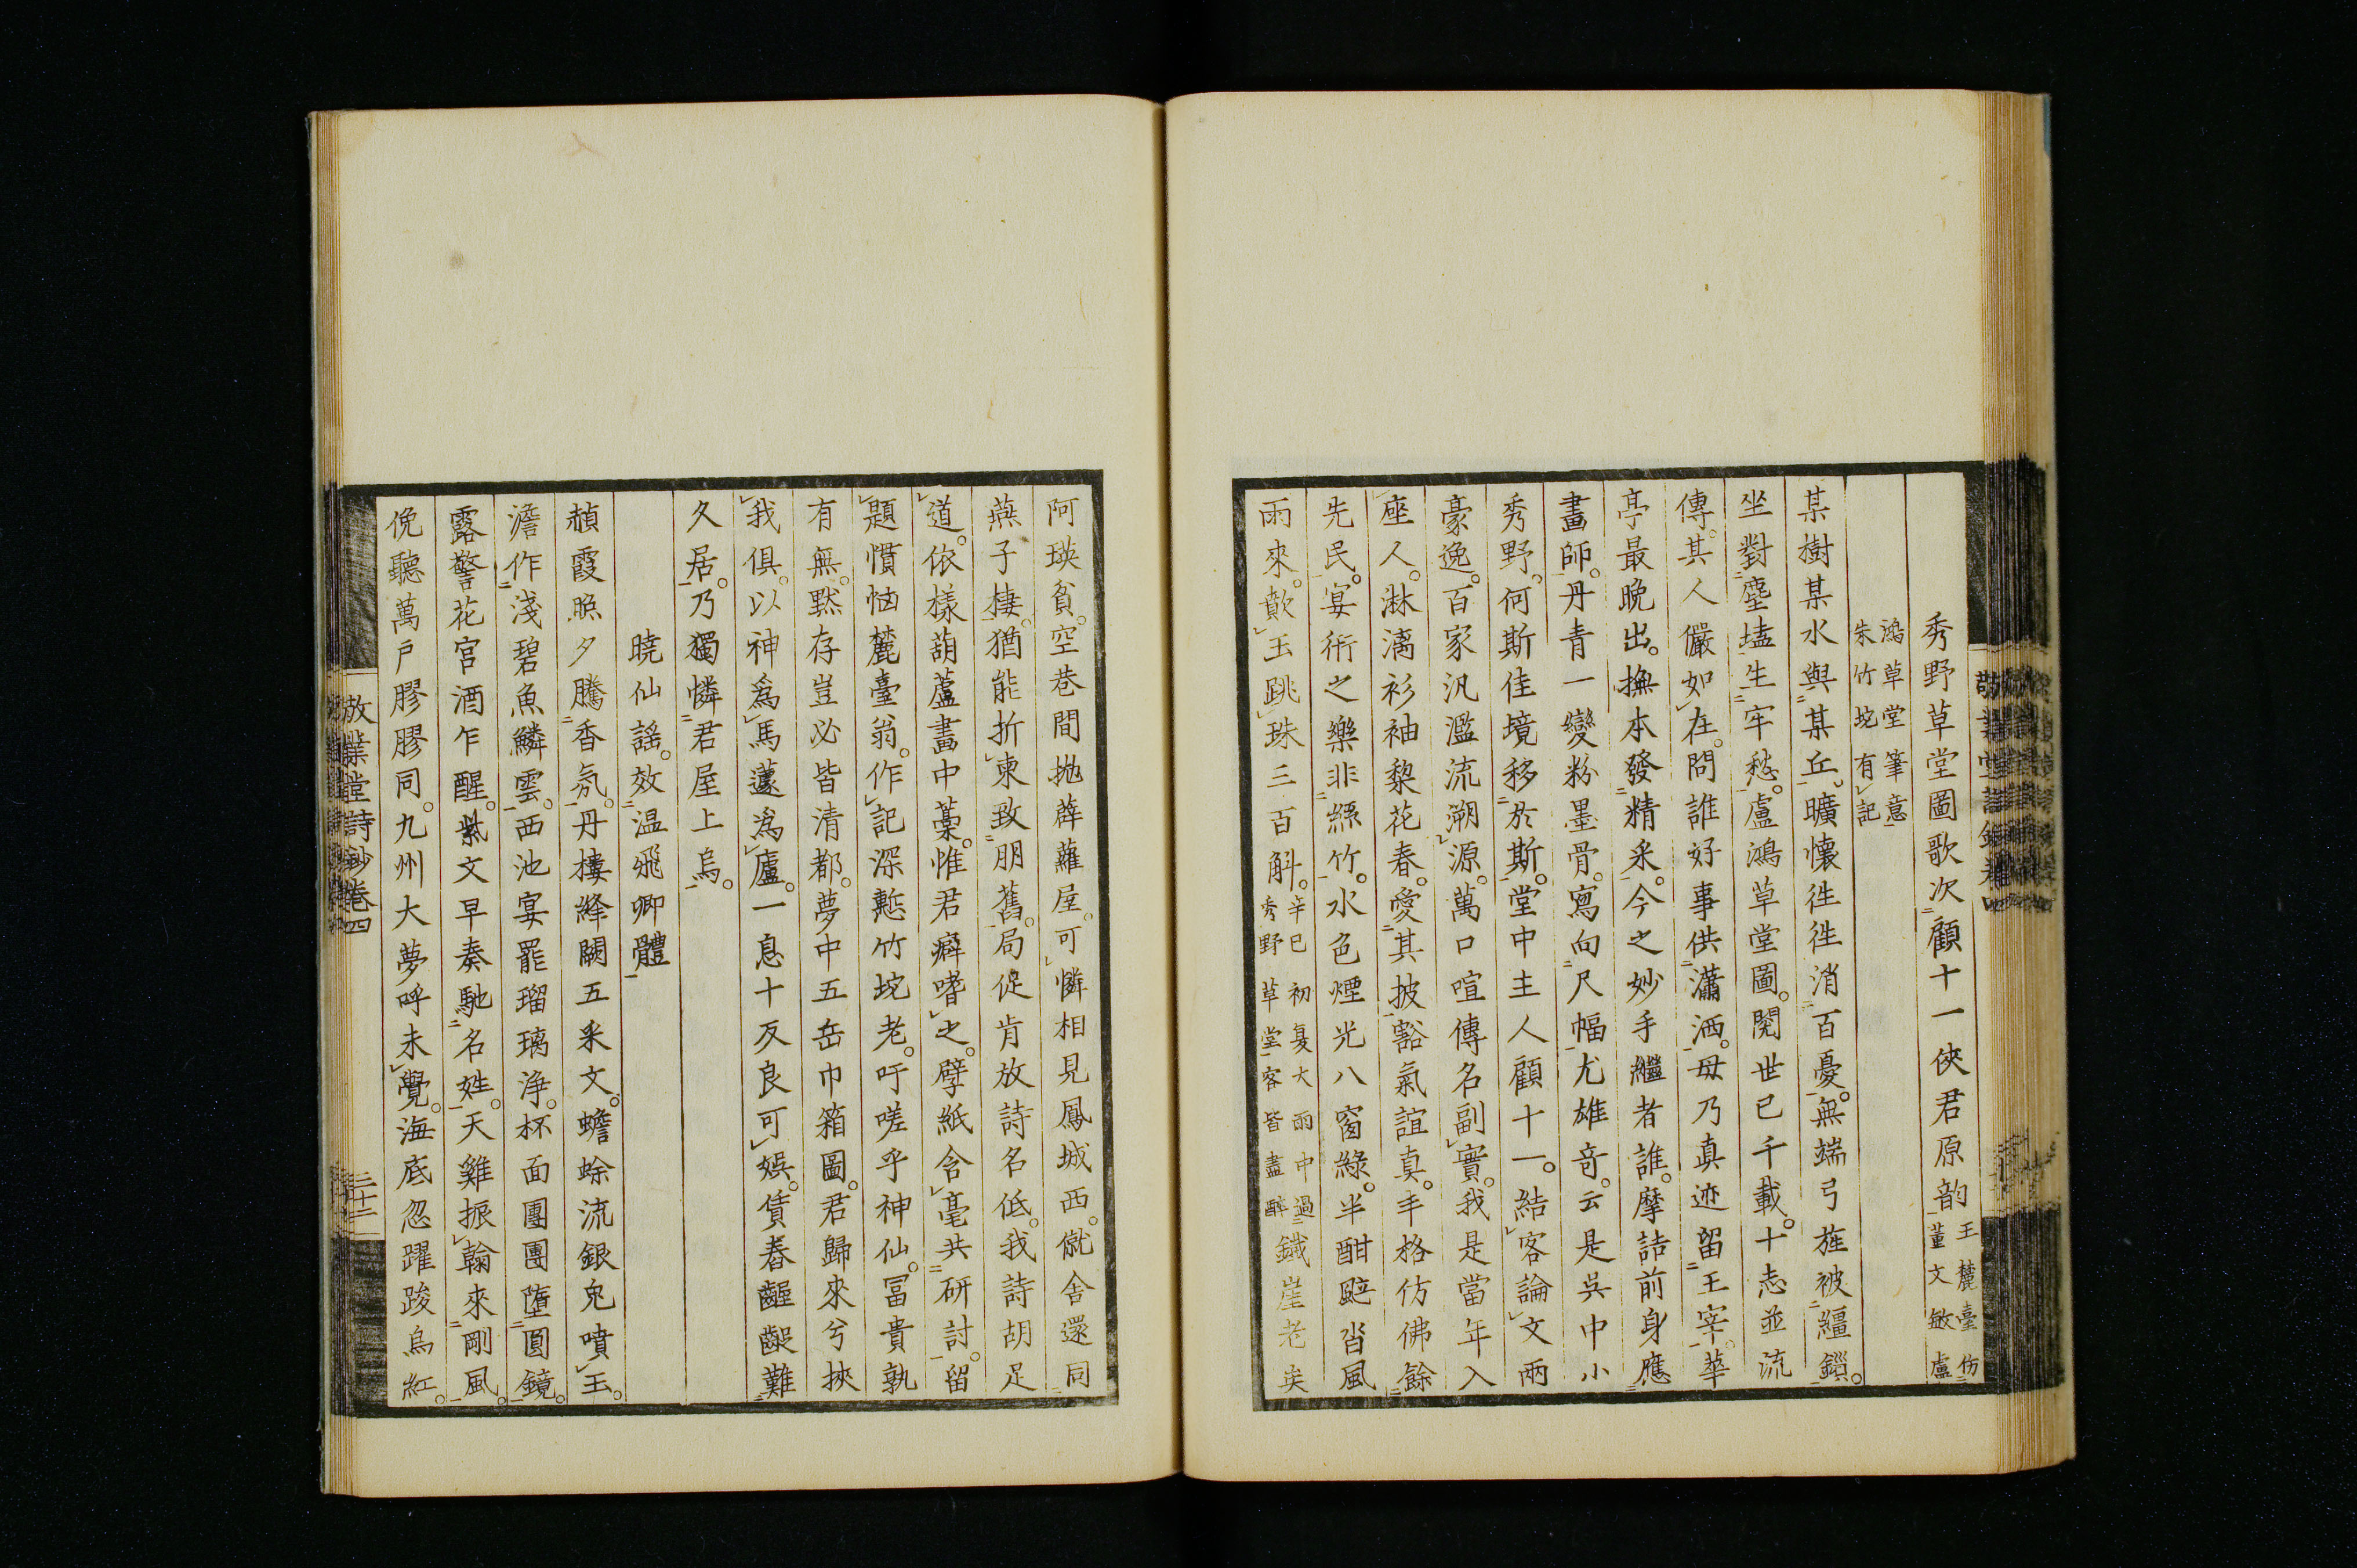 秀野草堂圖歌次顧十一俠君原韵王麓臺仿董文敏盧
鴻草堂筆意朱竹垞有記
某樹某水與某丘曠懷徃徃消百憂。無端弓旌被繮鎖。
坐對塵壒生牢愁。盧鴻草堂圖。閱世已千載。十志並流
傳。其人儼如在。問誰好事供瀟洒。毋乃真迹留王宰。華
亭最晚出。撫本發精采。今之妙手繼者誰。摩詰前身應
畫師。丹青一變粉墨骨。寫向尺幅尤雄奇。云是吳中小
秀野。何斯佳境移於斯。堂中主人顧十一。結客論文兩
豪逸。百家汎濫流溯源。萬口喧傳名副實。我是當年入
座人。淋漓衫袖棃花春。愛其披豁氣誼真。丰格仿佛餘
先民。宴衎之樂非絲竹。水色煙光八窗綠。半酣颰沓風
雨來。歕玉跳珠三百斛。辛巳初夏大雨中過秀野草堂客皆盡醉鐵崖老矣
阿瑛貧。空巷間抛薜蘿屋。可憐相見鳳城西。僦舍還同
燕子棲。猶能折柬致朋舊。局促肯放詩名低。我詩胡足
道。依樣葫蘆畫中藳。惟君癖嗜之。擘紙含毫共研討。留
題慣恼麓臺翁。作記深慙竹垞老。吁嗟乎神仙。冨貴孰
有無。默存豈必皆清都。夢中五岳巾箱圖。君歸來兮挾
我俱。以神爲馬蘧爲廬。一息十反良可娛。賃舂齷齪難
久居。乃獨憐君屋上烏。
曉仙謠。效温飛卿體
頳霞煦夕騰香氛。丹樓絳闕五采文。蟾蜍流銀兔噴玉。
澹作淺碧魚鱗雲。西池宴罷瑠璃淨。杯面團團墮圓鏡。
露警花宮酒乍醒。紫文早奏馳名姓。天雞振翰來剛風。
俛聽萬戶膠膠同。九州大夢呼未覺。海底忽躍踆烏紅。
放業堂詩鈔卷四
二十二